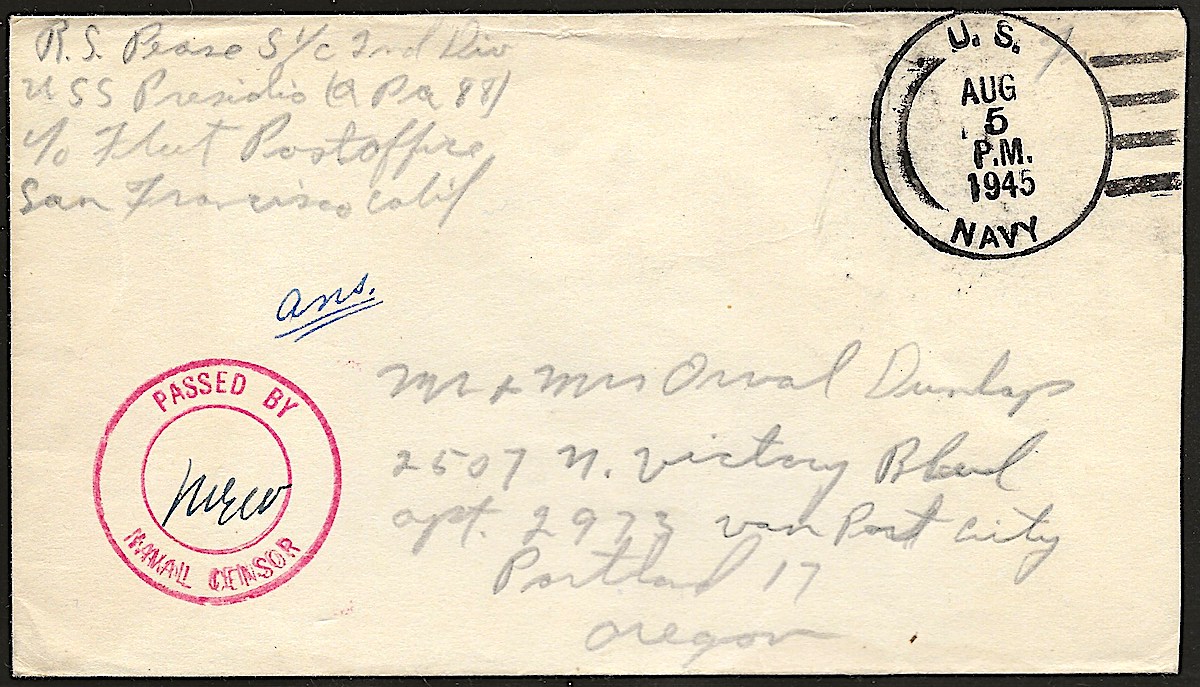 R. S. Pease S 1/c 2nd Div
USS Presidio (APA 88)
c/o Fleet Postoffice
San Francisco Calif
U.S.
AUG
5
P.M.
1945
NAVY
ans.
PASSED BY
NAVAL CENSOR
Mr & Mrs Orval Dunlap
2507 N. Victory Blvd
apt. 2973 Van Port City
Portland 17
Oregon